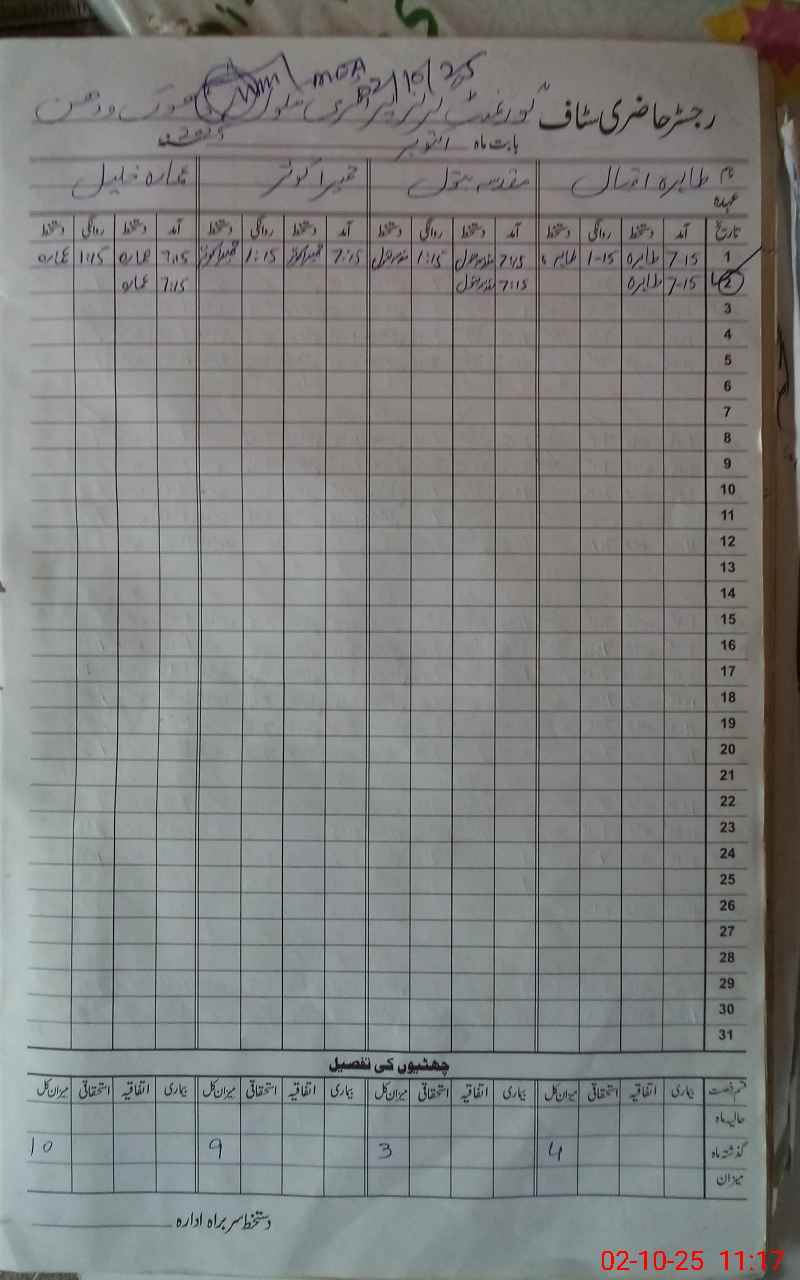 MEA
02/10/25
رجسٹر حاضری سٹاف گورنمنٹ گرلز پرائمری سکول
بابت ماہ اکتوبر 2025
نام طاہرہ اقبال مقدسہ بتول حمیرا کوثر عمارہ خلیل
عہدہ
تاریخ آمد دستخط روانگی دستخط آمد دستخط روانگی دستخط آمد دستخط روانگی دستخط آمد دستخط روانگی دستخط
1 7-15 طاہرہ 1-15 طاہرہ 7:15 مقدسہ بتول 1:15 مقدسہ بتول 7:15 حمیرا کوثر 1:15 حمیرا کوثر 7:15 عمارہ 1:15 عمارہ
2 7-15 طاہرہ 7:15 مقدسہ بتول 7:15 عمارہ
3
4
5
6
7
8
9
10
11
12
13
14
15
16
17
18
19
20
21
22
23
24
25
26
27
28
29
30
31
چھٹیوں کی تفصیل
قسم رخصت بیماری اتفاقیہ استحقاقی میزان کل بیماری اتفاقیہ استحقاقی میزان کل بیماری اتفاقیہ استحقاقی میزان کل بیماری اتفاقیہ استحقاقی میزان کل
حالیہ ماہ
گذشتہ ماہ 4 3 9 10
میزان
دستخط سربراہ ادارہ
02-10-25 11:17